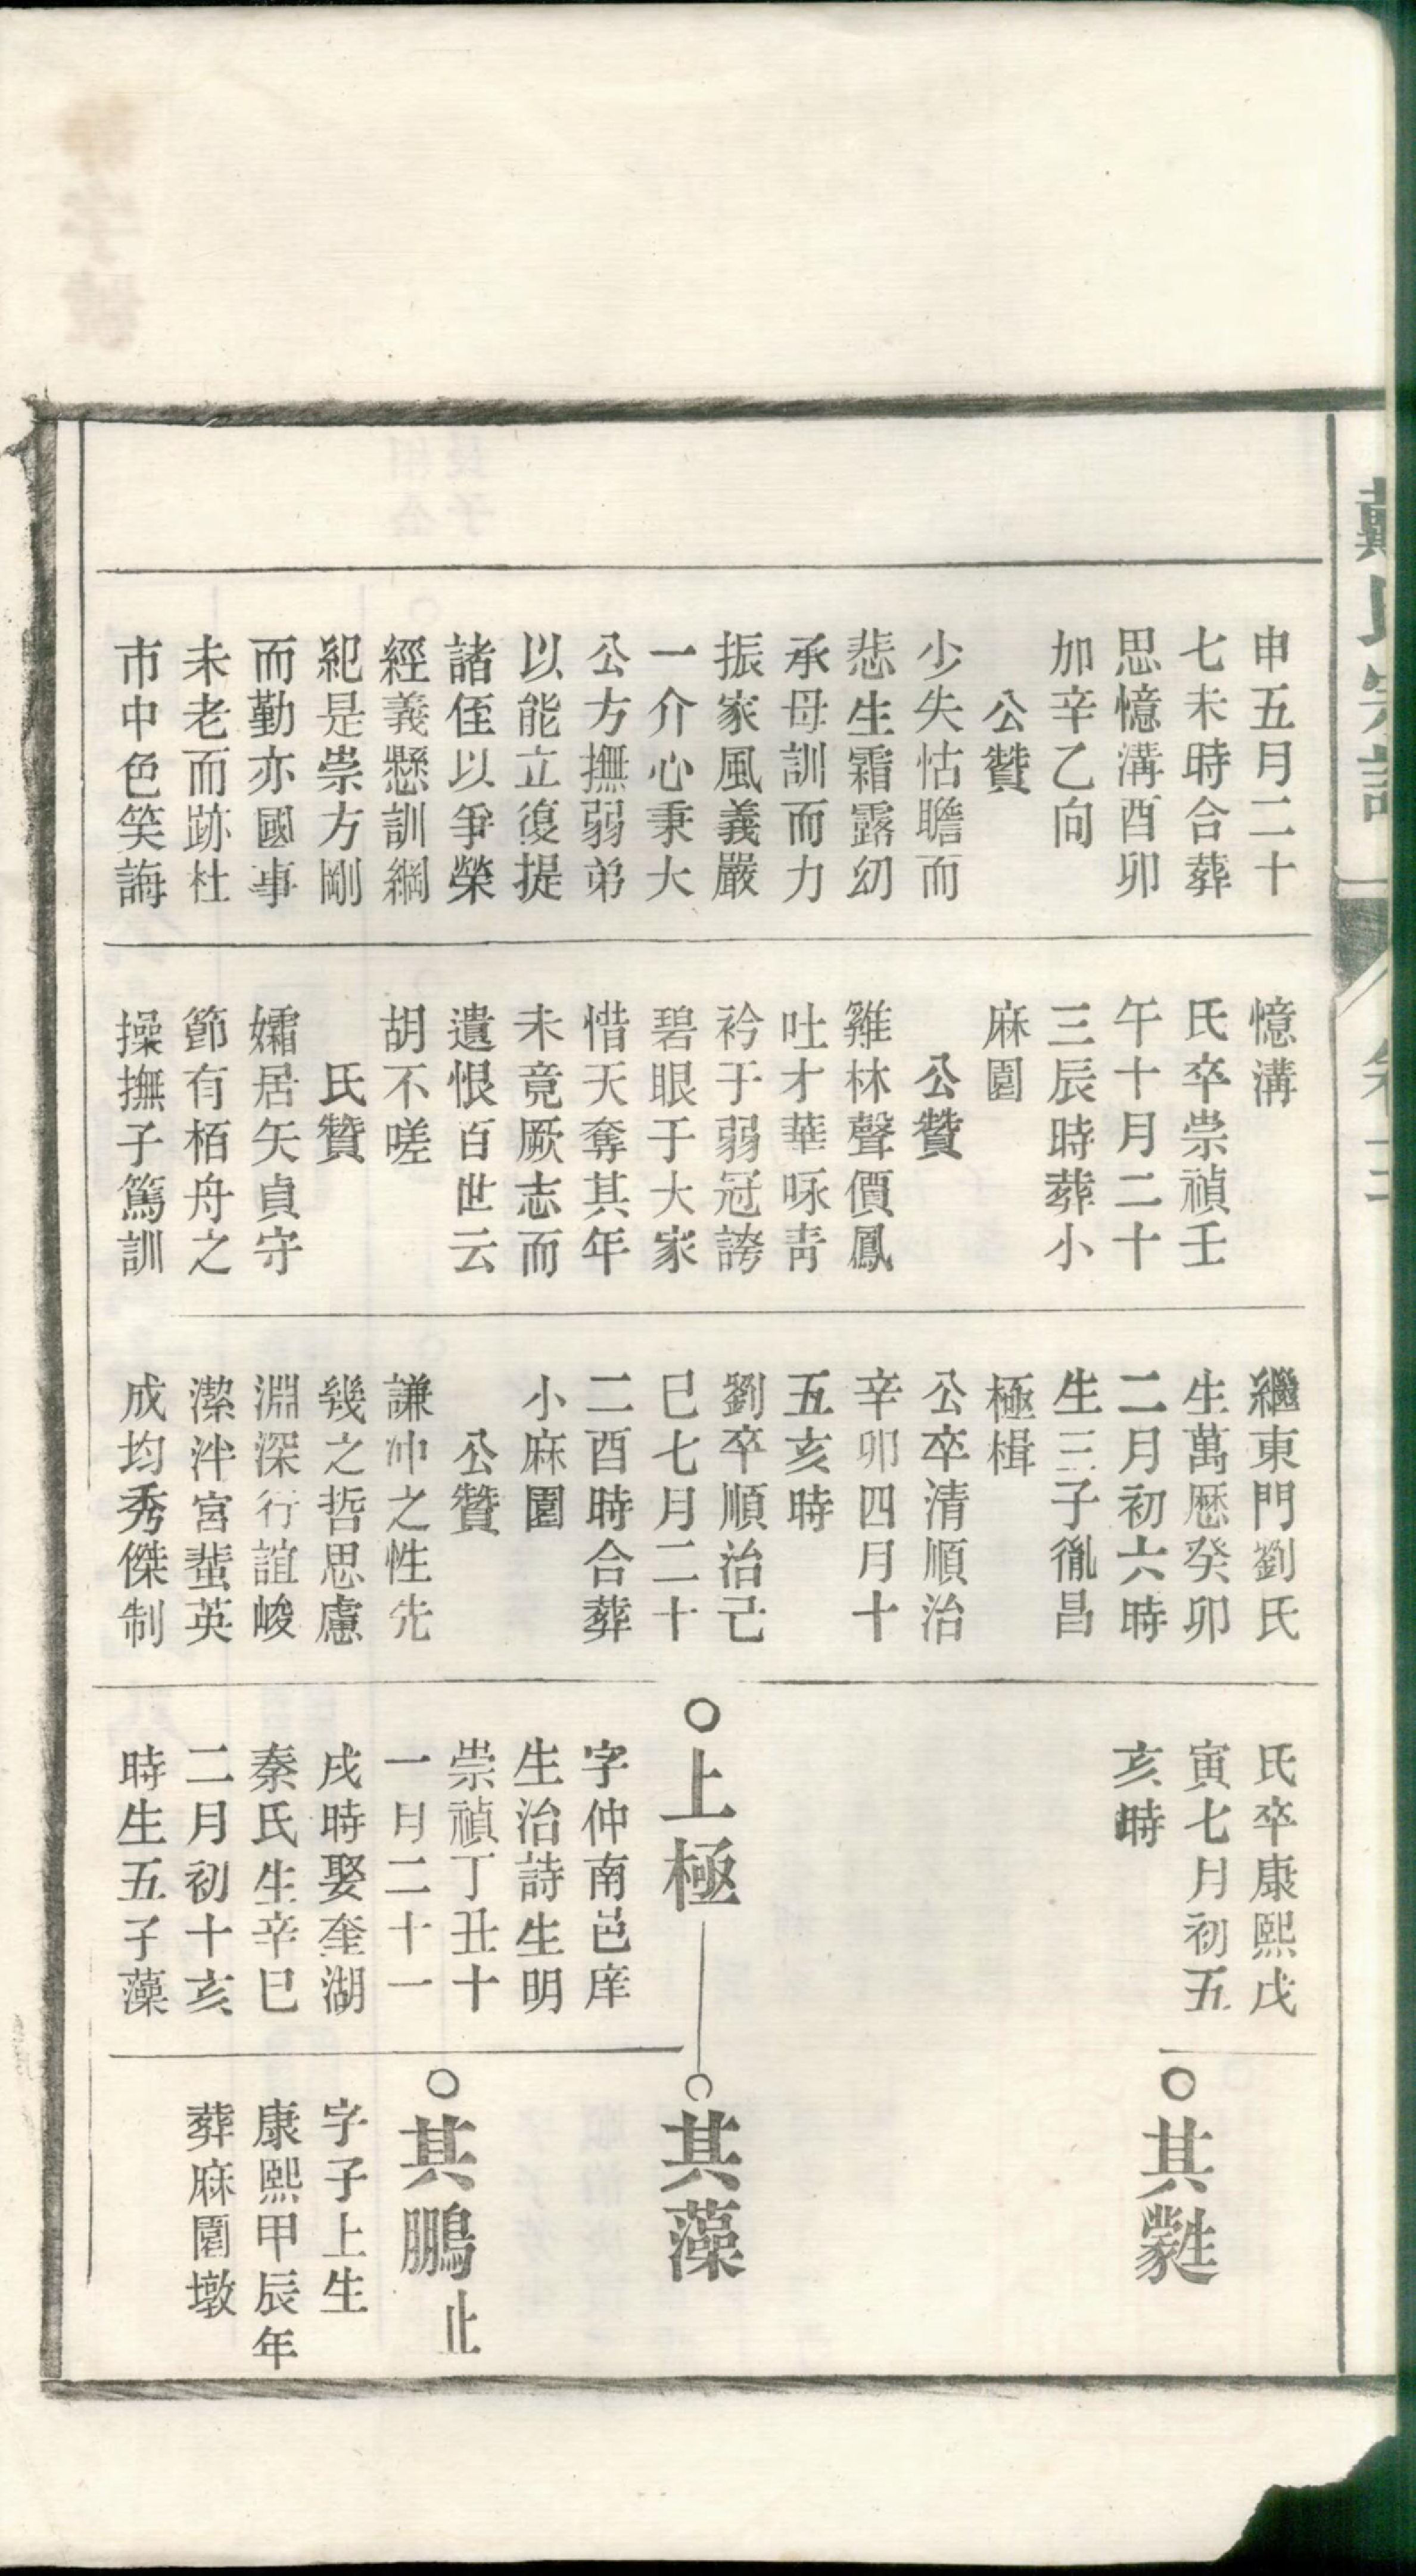 戴氏宗譜
申五月二十
七未時合葬
思憶溝酉卯
加辛乙向
公贊
少失怙瞻而
悲生霜露幼
承母訓而力
振家風義嚴
一介心秉大
公方撫弱弟
以能立復提
諸侄以爭榮
經義懸訓綱
紀是崇方剛
而勤亦國事
未老而跡杜
市中色笑誨
憶溝
氏卒崇禎壬
午十月二十
三辰時葬小
麻園
公贊
雞林聲價鳳
吐才華咏青
衿于弱冠誇
碧眼于大家
惜天奪其年
未竟厥志而
遺恨百世云
胡不嗟
氏贊
孀居矢貞守
節有栢舟之
操撫子篤訓
繼東門劉氏
生萬曆癸卯
二月初六時
生三子胤昌
極楫
公卒清順治
辛卯四月十
五亥時
劉卒順治己
巳七月二十
二酉時合葬
小麻園
公贊
謙冲之性先
幾之哲思慮
淵深行誼峻
潔泮宮蜚英
成均秀傑制
氏卒康熙戊
寅七月初五
亥時
上極
字仲南邑庠
生治詩生明
崇禎丁丑十
一月二十一
戌時娶奎湖
秦氏生辛巳
二月初十亥
時生五子藻
其
其藻
其鵬 止
字子上生
康熙甲辰年
葬麻園墩